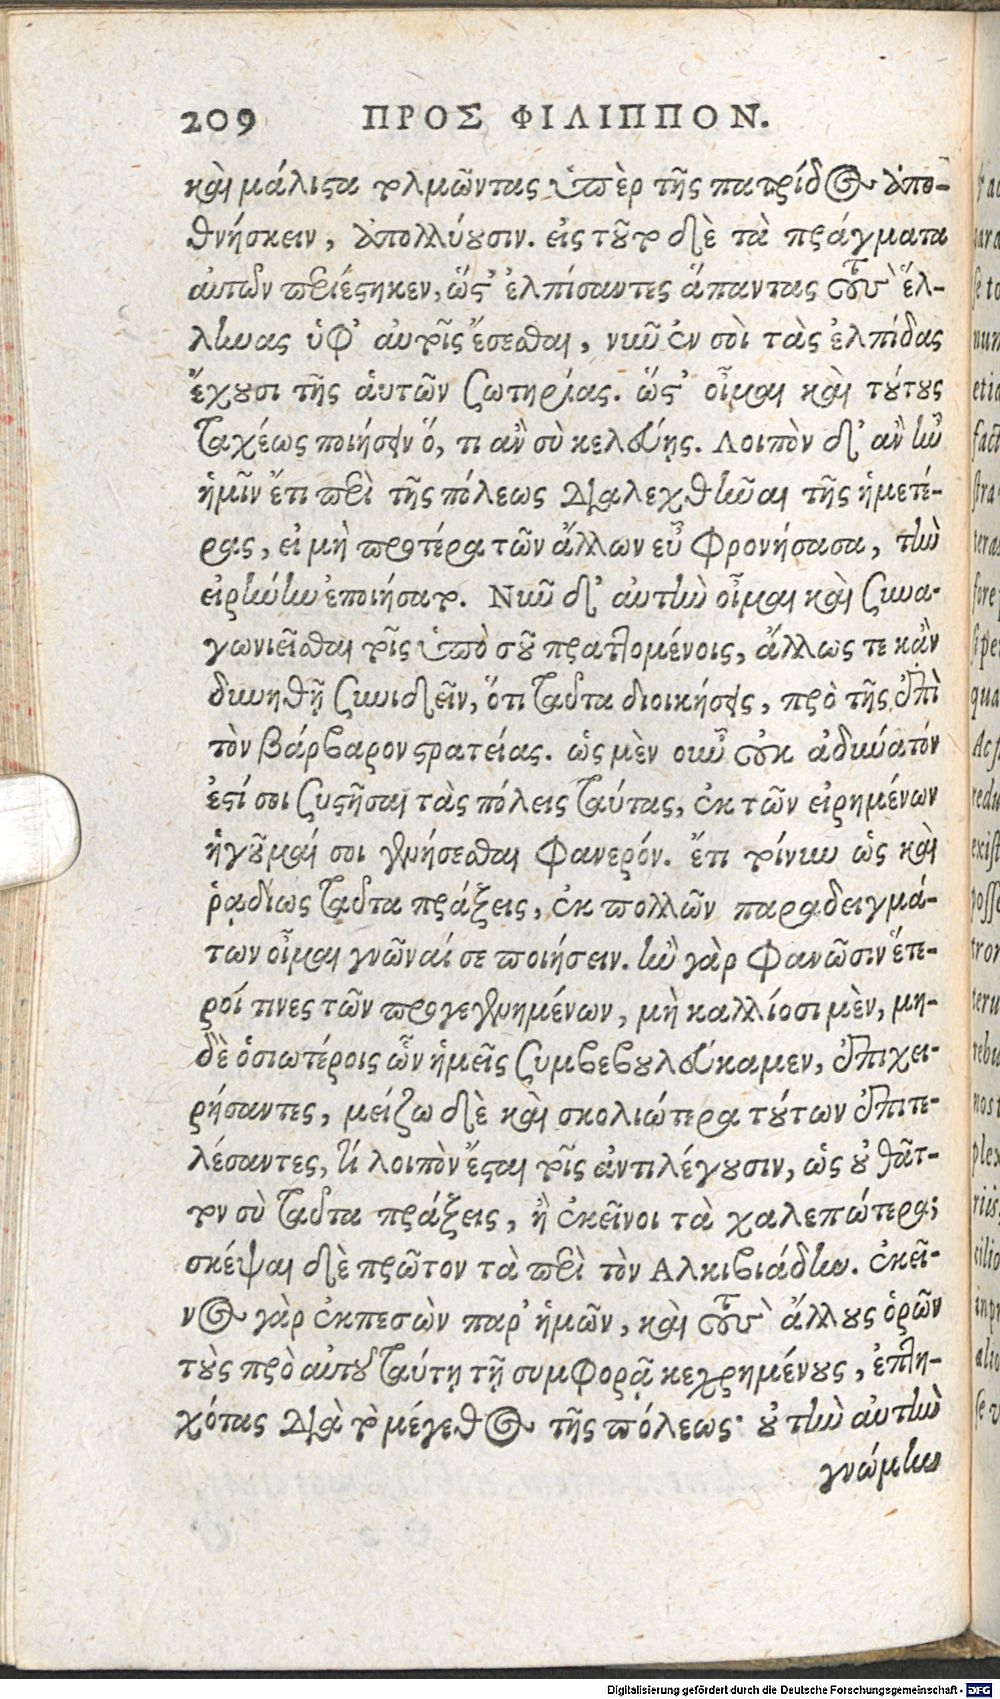 209 ΠΡΟΣ ΦΙΛΙΠΠΟΝ.
καὶ μάλιστα τολμῶντας ὑπὲρ τῆς πατρίδος ἀπο-
θνήσκειν, ἀπολλύουσιν. εἰς τοῦτο δὲ τὰ πράγματα
αὐτῶν περιέστηκεν, ὥστ' ἐλπίσαντες ἅπαντας τοὺς ἕλ-
ληνας ὑφ' αὑτοῖς ἔσεσθαι, νῦν ἐν σοὶ τὰς ἐλπίδας
ἔχουσι τῆς αὑτῶν σωτηρίας. ὥστ' οἶμαι καὶ τούτους
ταχέως ποιήσειν ὅ, τι ἂν σὺ κελεύῃς. Λοιπὸν δ' ἂν ἦν
ἡμῖν ἔτι περὶ τῆς πόλεως διαλεχθῆναι τῆς ἡμετέ-
ρας, εἰ μὴ προτέρα τῶν ἄλλων εὖ φρονήσασα, τὴν
εἰρήνην ἐποιήσατο. Νῦν δ' αὐτὴν οἶμαι καὶ συνα-
γωνιεῖσθαι τοῖς ὑπὸ σοῦ πραττομένοις, ἄλλως τε κἂν
δυνηθῇ συνιδεῖν, ὅτι ταῦτα διοικήσεις, πρὸ τῆς ἐπὶ
τὸν βάρβαρον στρατείας. ὡς μὲν οὖν οὐκ ἀδύνατόν
ἐστί σοι συστῆσαι τὰς πόλεις ταύτας, ἐκ τῶν εἰρημένων
ἡγοῦμαί σοι γενήσεσθαι φανερόν. ἔτι τοίνυν ὡς καὶ
ῥᾳδίως ταῦτα πράξεις, ἐκ πολλῶν παραδειγμά-
των οἶμαι γνῶναί σε ποιήσειν. ἢν γὰρ φανῶσιν ἕτε-
ροί τινες τῶν προγεγενημένων, μὴ καλλίοσι μὲν, μη-
δὲ ὁσιωτέροις ὧν ἡμεῖς συμβεβουλεύκαμεν, ἐπιχει-
ρήσαντες, μείζω δὲ καὶ σκολιώτερα τούτων ἐπιτε-
λέσαντες, τί λοιπὸν ἔσται τοῖς ἀντιλέγουσιν, ὡς οὐ θᾶτ-
τον σὺ ταῦτα πράξεις, ἢ ἐκεῖνοι τὰ χαλεπώτερα;
σκέψαι δὲ πρῶτον τὰ περὶ τὸν Αλκιβιάδην. ἐκεῖ-
νος γὰρ ἐκπεσὼν παρ' ἡμῶν, καὶ τοὺς ἄλλους ὁρῶν
τοὺς πρὸ αὐτοῦ ταύτῃ τῇ συμφορᾷ κεχρημένους, ἐπτη-
χότας διὰ τὸ μέγεθος τῆς πόλεως· οὐ τὴν αὐτὴν
γνώμην
Digitalisierung gefördert durch die Deutsche Forschungsgemeinschaft - DFG